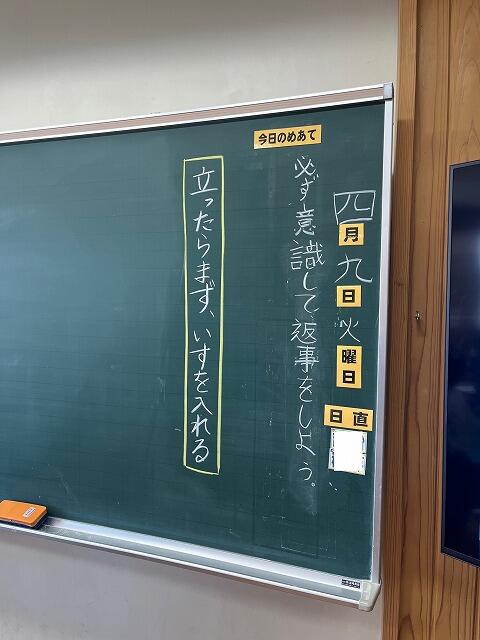 四月九日火曜日
日直
今日のめあて
必ず意識して、返事をしよう。
立ったらまず、いすを入れる